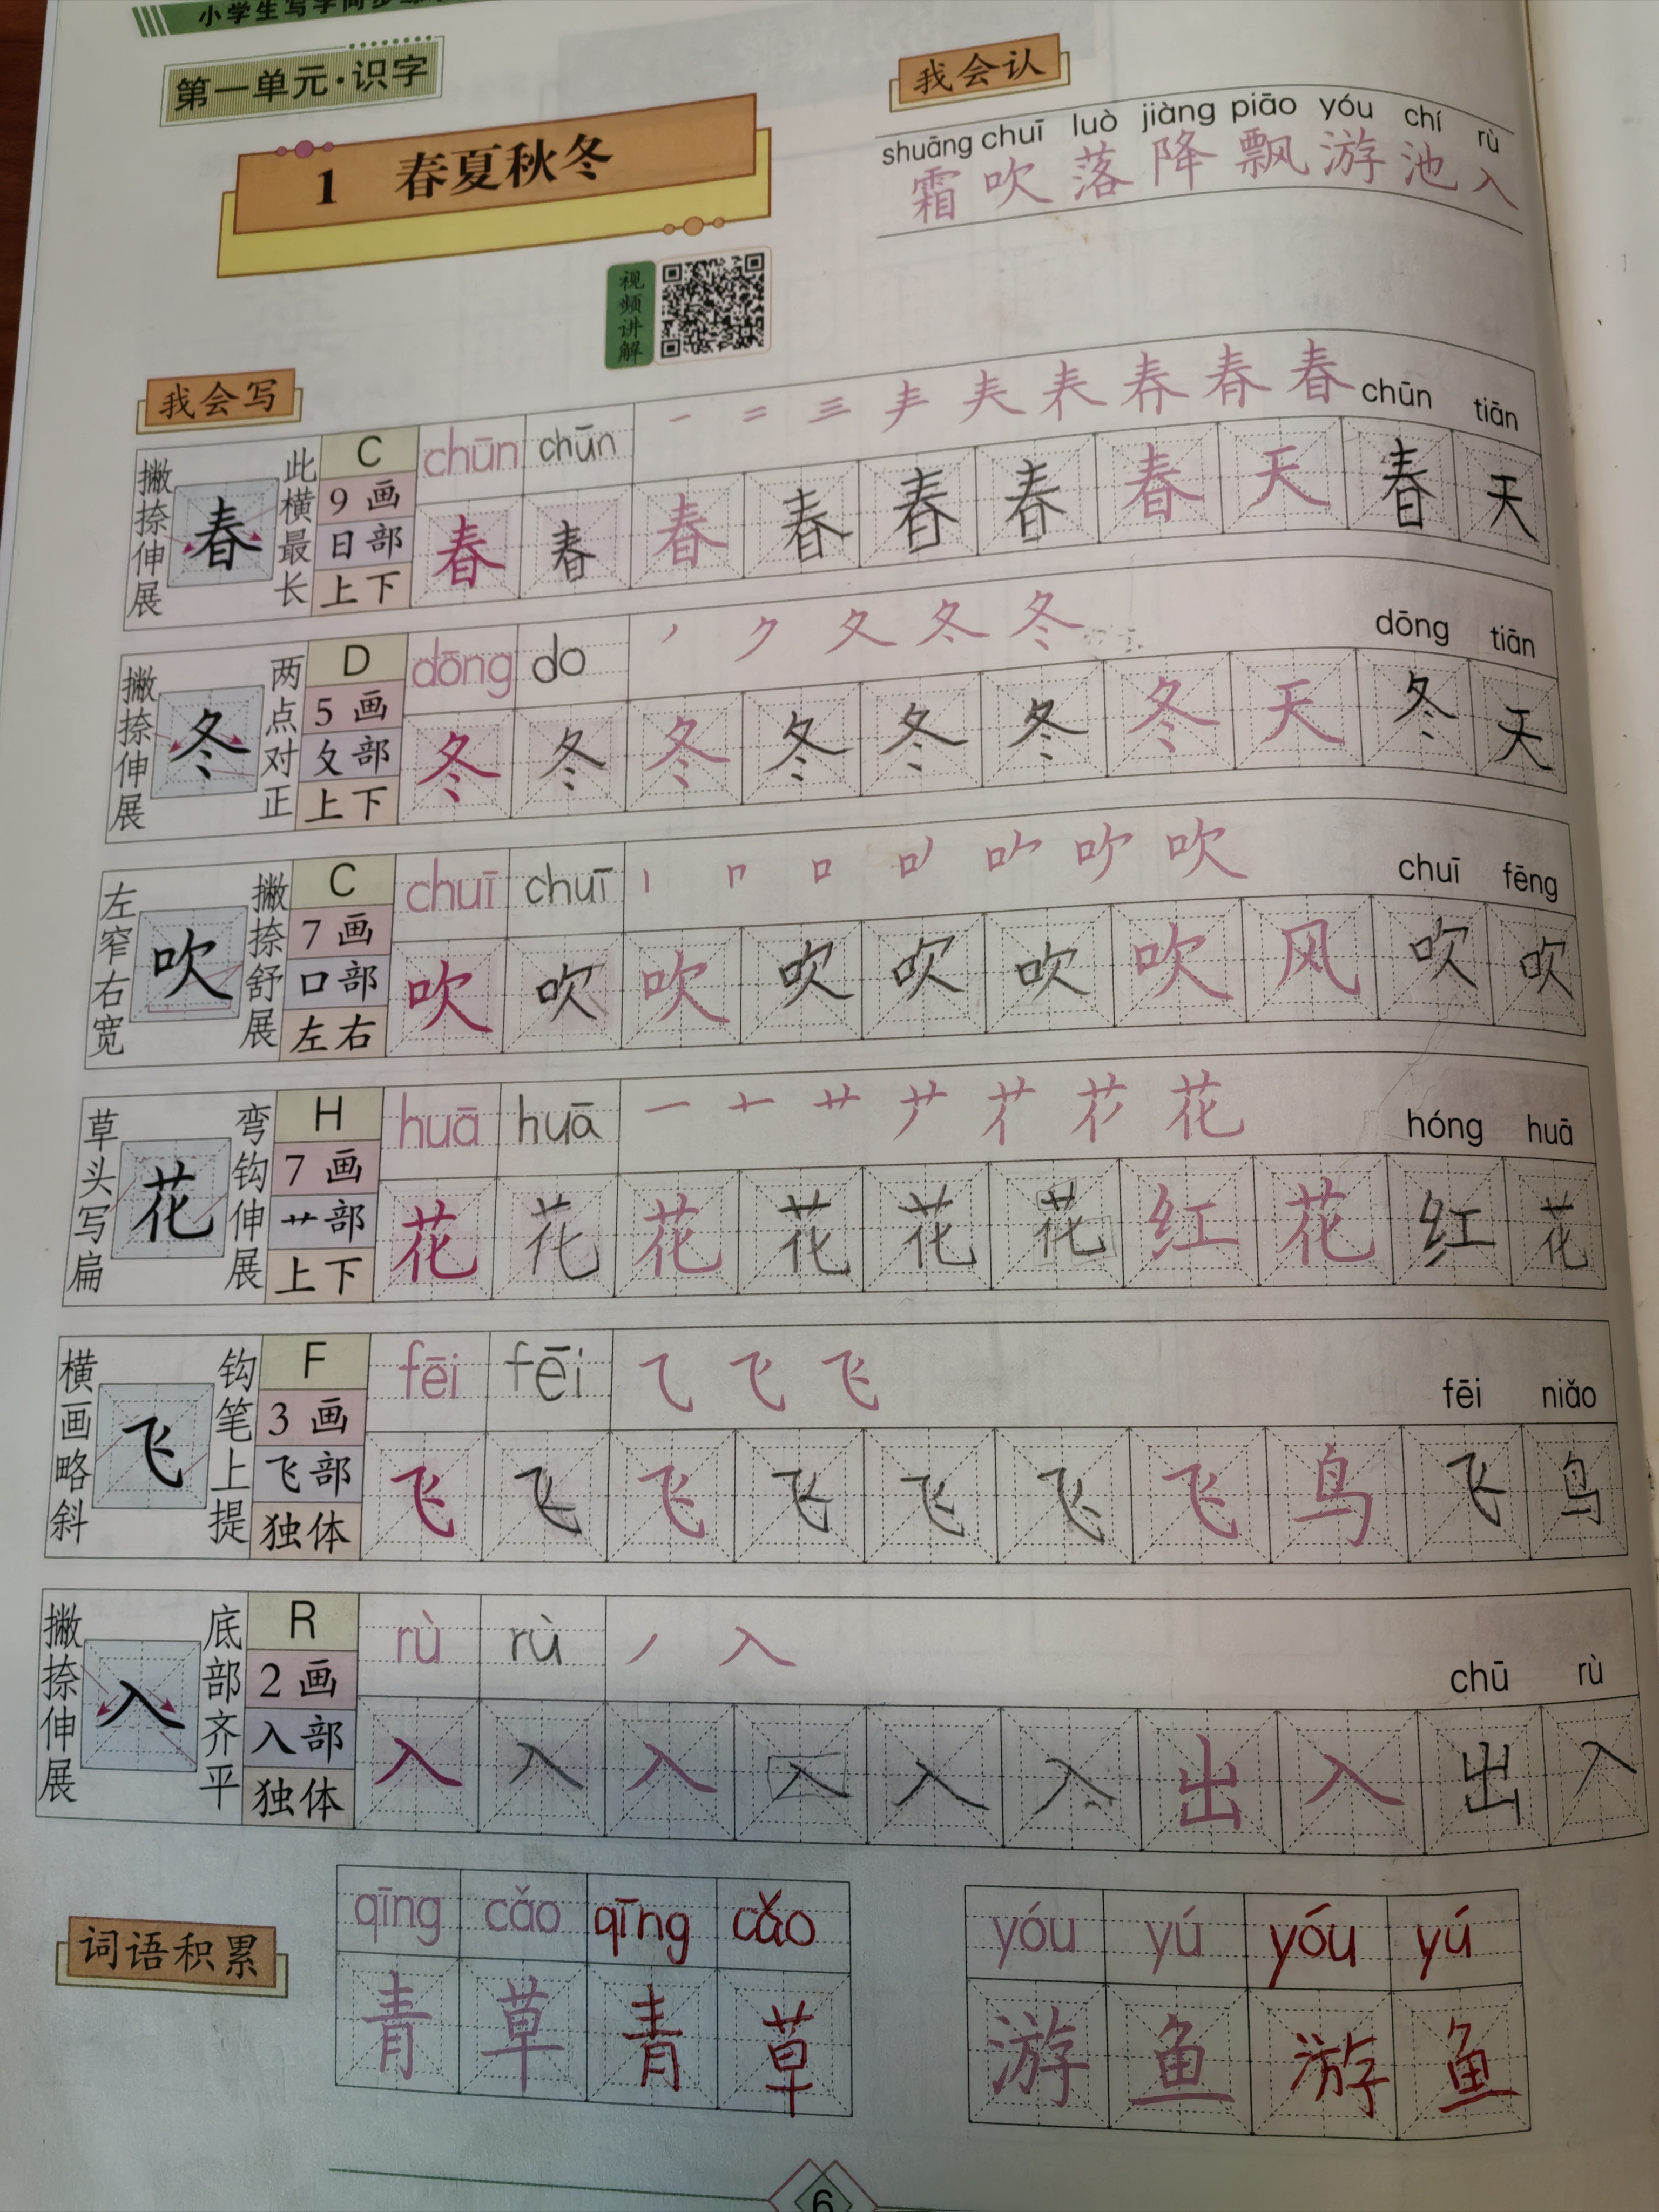 小学生写字同步
第一单元·识字
1 春夏秋冬
视频讲解
我会认
shuāng chuī luò jiàng piāo yóu chí rù
霜 吹 落 降 飘 游 池 入
我会写
撇捺伸展 春 此横最长
C
9 画
日部
上下
chūn chūn
一 二 三 𡗗 春 春 chūn tiān
春 春 春 春 春 春 春 天 春 天
撇捺伸展 冬 两点对正
D
5 画
夂部
上下
dōng do
丿 ク 夂 冬 冬 dōng tiān
冬 冬 冬 冬 冬 冬 冬 天 冬 天
左窄右宽 吹 撇捺舒展
C
7 画
口部
左右
chuī chuī
丨 口 吹 chuī fēng
吹 吹 吹 吹 吹 吹 吹 风 吹 吹
草头写扁 花 弯钩伸展
H
7 画
艹部
上下
huā huā
一 十 艹 花 hóng huā
花 花 花 花 花 花 红 花 红 花
横画略斜 飞 钩笔上提
F
3 画
飞部
独体
fēi fēi
乁 飞 飞 fēi niǎo
飞 飞 飞 飞 飞 飞 飞 鸟 飞 鸟
撇捺伸展 入 底部齐平
R
2 画
入部
独体
rù rù
丿 入 chū rù
入 入 入 入 入 入 出 入 出 入
词语积累
qīng cǎo qīng cǎo
青 草 青 草
yóu yú yóu yú
游 鱼 游 鱼
6